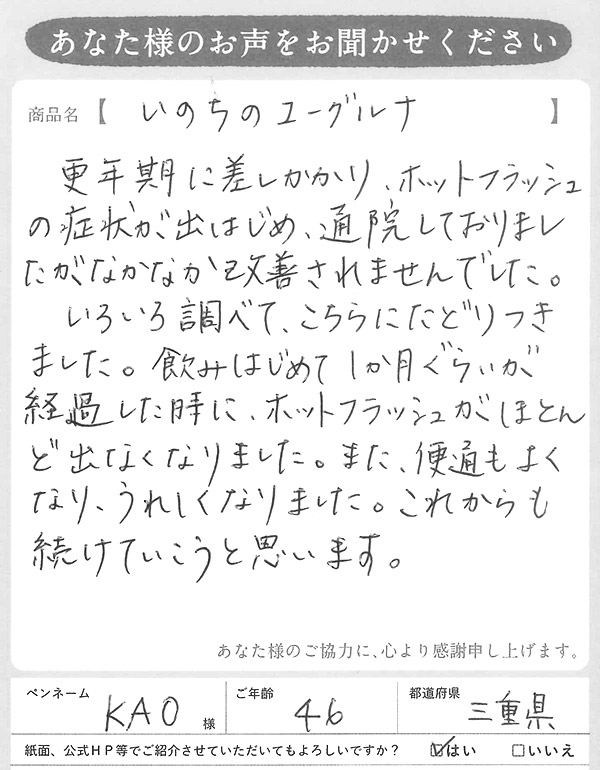 あなた様のお声をお聞かせください
商品名【 いのちのユーグルナ 】
更年期に差しかかり、ホットフラッシュ
の症状が出はじめ、通院しておりまし
たがなかなか改善されませんでした。
いろいろ調べて、こちらにたどりつき
ました。飲みはじめて1か月ぐらいが
経過した時に、ホットフラッシュがほとん
ど出なくなりました。また、便通もよく
なり、うれしくなりました。これからも
続けていこうと思います。
あなた様のご協力に、心より感謝申し上げます。
ペンネーム KAO 様 ご年齢 46 都道府県 三重県
紙面、公式HP等でご紹介させていただいてもよろしいですか? ☑はい □いいえ